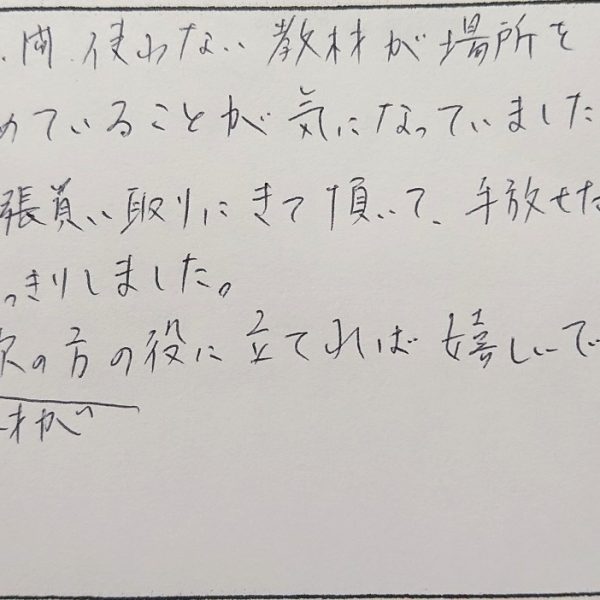 間 使わない 教材が場所を
めていることが気になっていました
張買い取りにきて頂いて、手放せた
っきりしました。
次の方の役に立てれば嬉しいで
材が